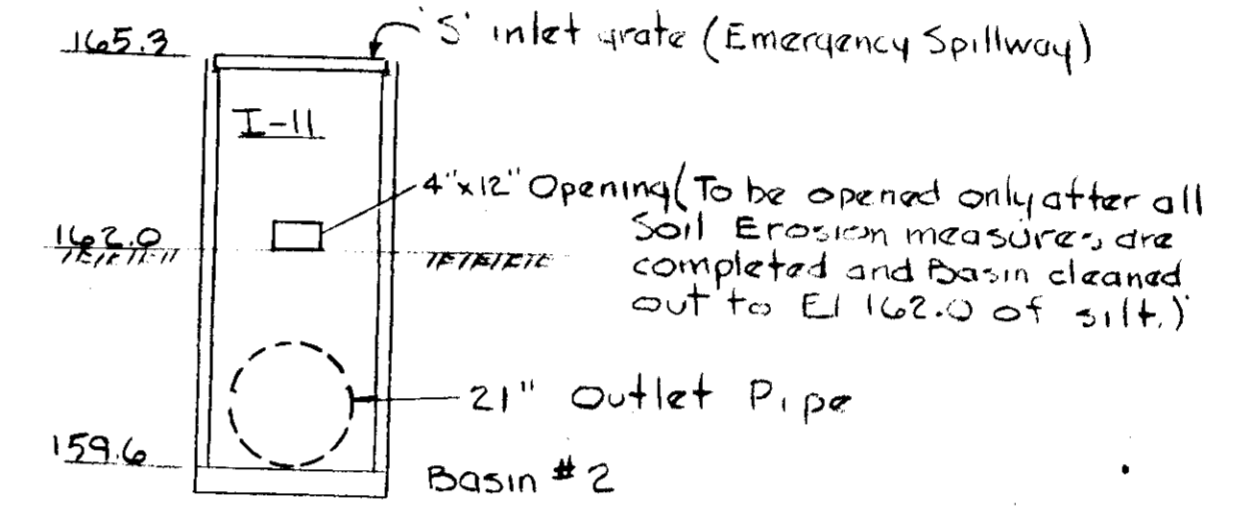 165.3
'S' inlet grate (Emergency Spillway)
I-11
4"x12" Opening (To be opened only after all
Soil Erosion measures are
completed and Basin cleaned
out to El 162.0 of silt.)
162.0
21" Outlet Pipe
159.6
Basin #2